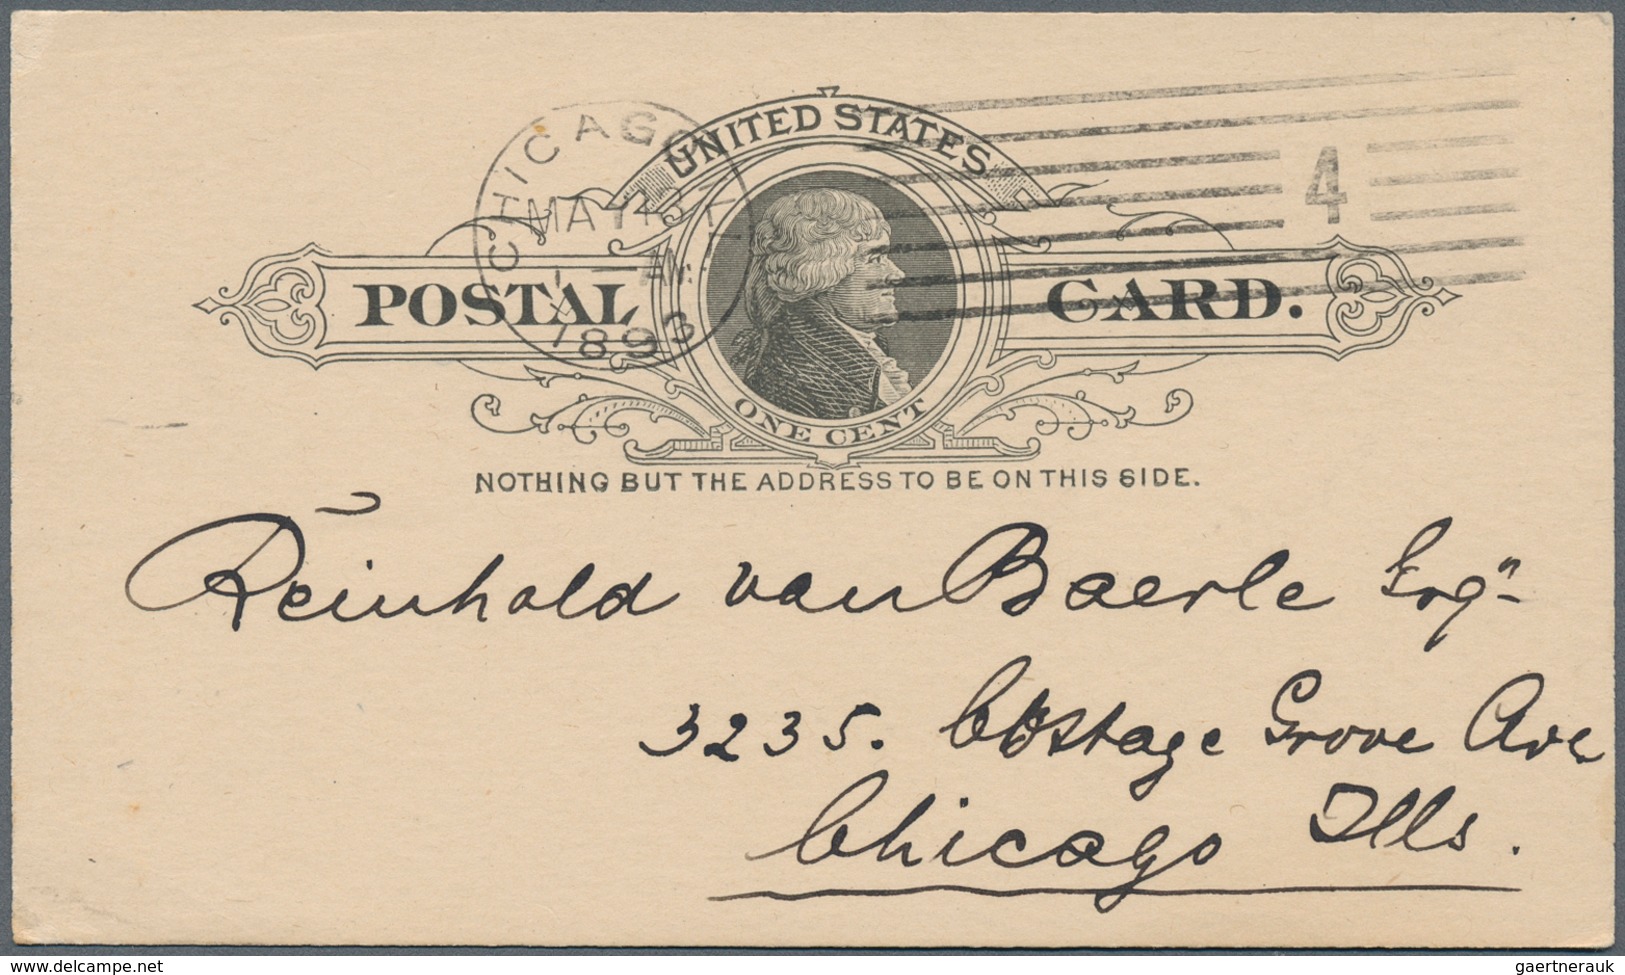 UNITED STATES
CHICAGO, ILL.
MAY
AM
1893
4
POSTAL CARD.
ONE CENT
NOTHING BUT THE ADDRESS TO BE ON THIS SIDE.
Reinhold van Baerle Esq"
3235. Cottage Grove Ave
Chicago Ills.
www.delcampe.net
gaertnerauk